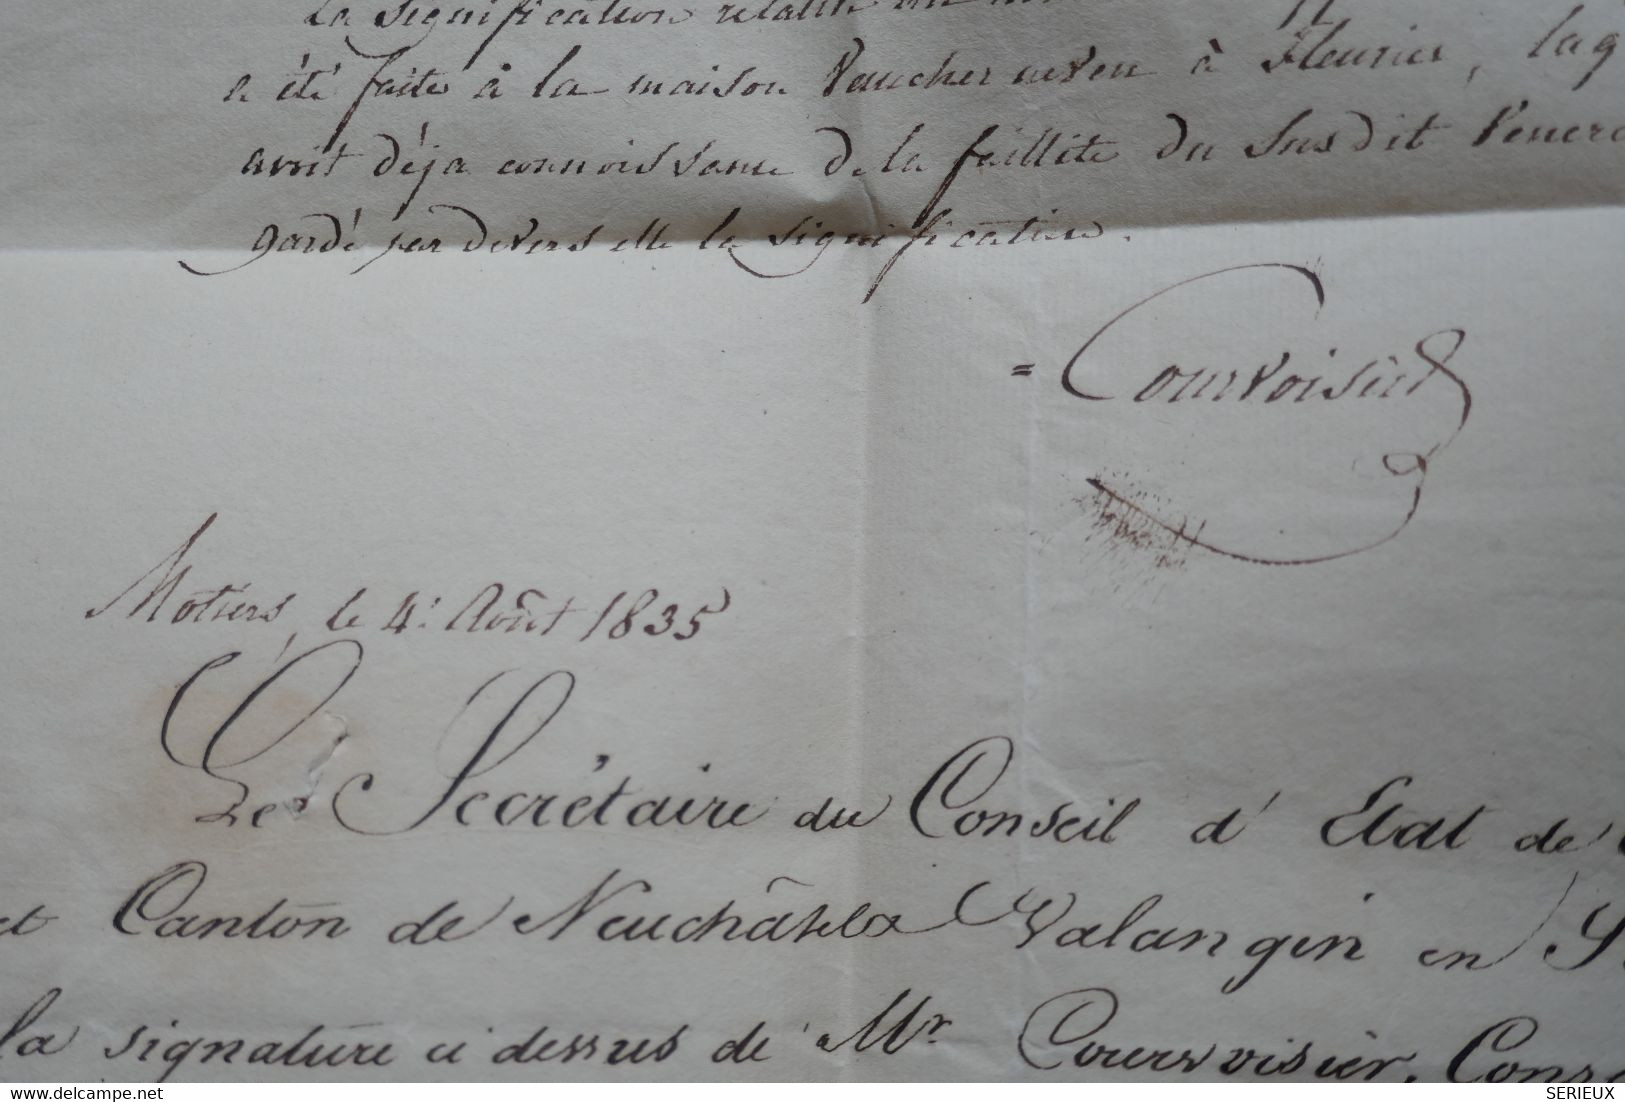 La signification relative
a été faite à la maison Vaucher neveu à Fleurier, laq
avoit déja connoissance de la faillite du susdit
gardé par devers elle la signification.
= Courvoisier
Motiers, le 4: Août 1835
Le Secrétaire du Conseil d'Etat de
et Canton de Neuchâtel & Valangin en S
la signature ci dessus de Mr Courvoisier, Cons
delcampe.net
SERIEUX